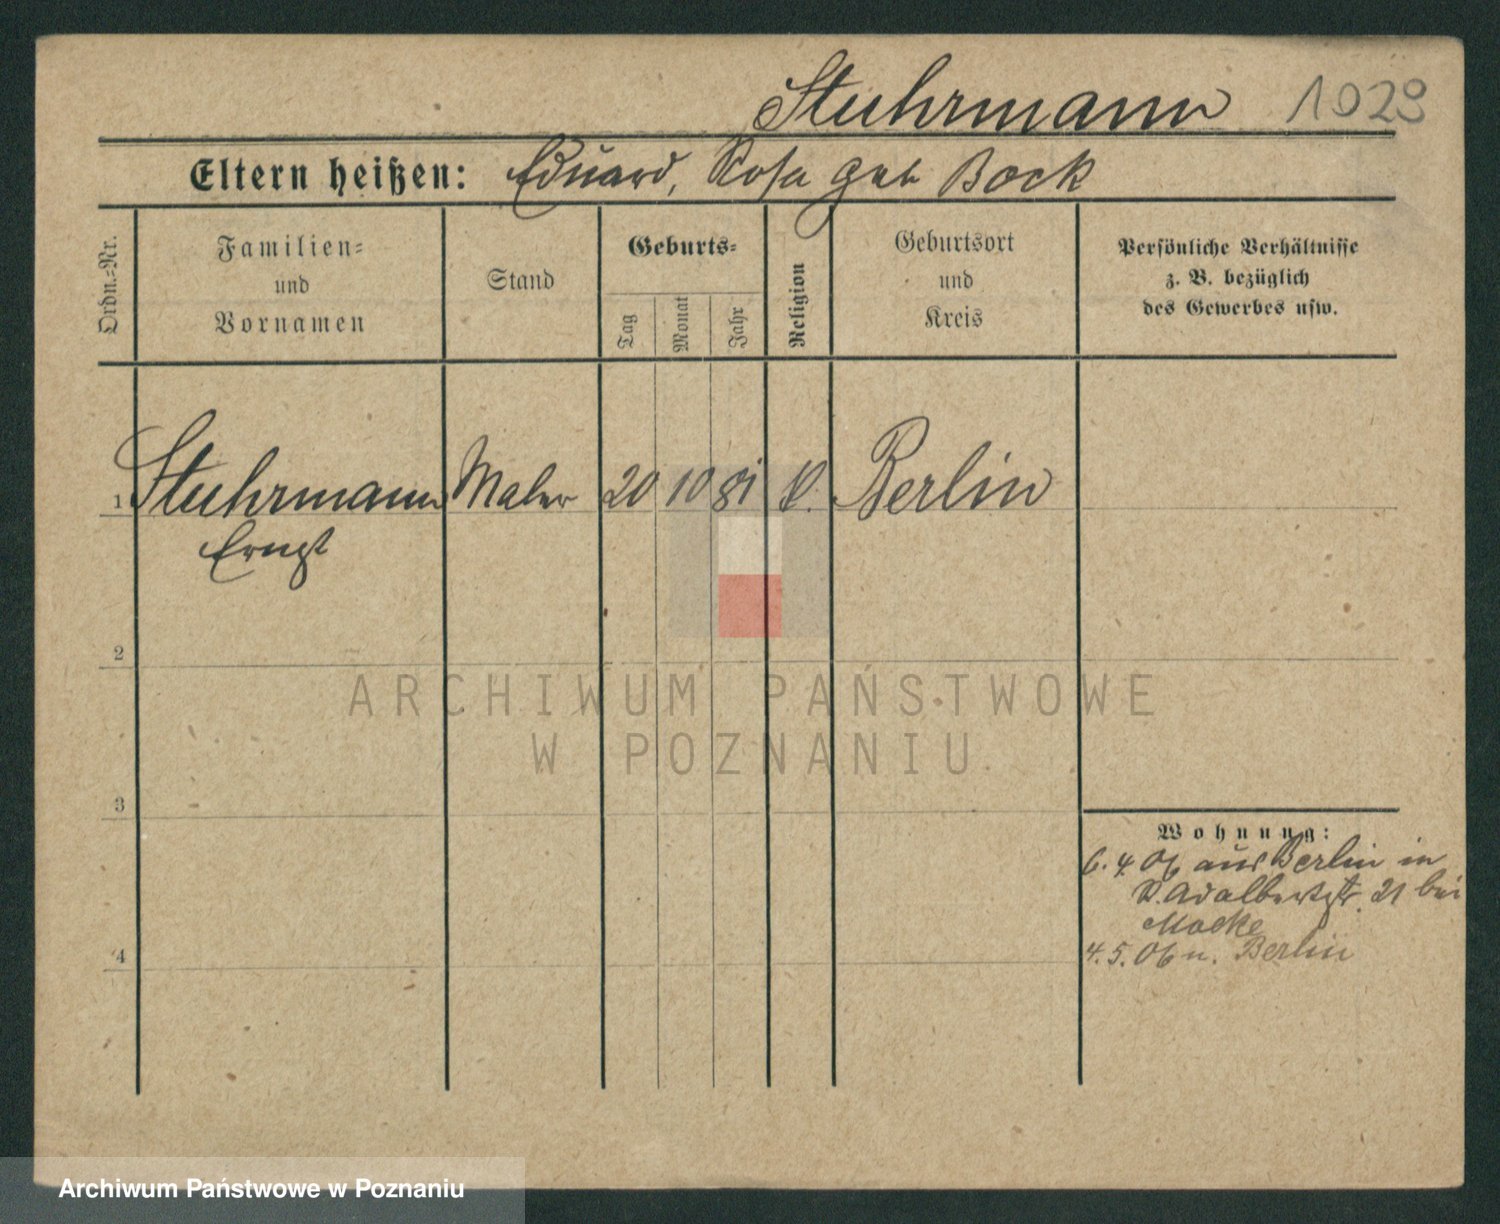 Stuhrmann 1023
Eltern heißen: Eduard, Rosa geb Bock
Ordn.-Nr.
Familien-
und
Vornamen
Stand
Geburts-
Tag
Monat
Jahr
Religion
Geburtsort
und
Kreis
Persönliche Verhältnisse
z. B. bezüglich
des Gewerbes usw.
1 Stuhrmann Maler 20 10 81 Berlin
Ernst
2
3
4
ARCHIWUM PAŃSTWOWE
W POZNANIU
Wohnung:
6.4.06 aus Berlin in
Adalbertstr. 21 bei
Macke
4.5.06 n. Berlin
Archiwum Państwowe w Poznaniu